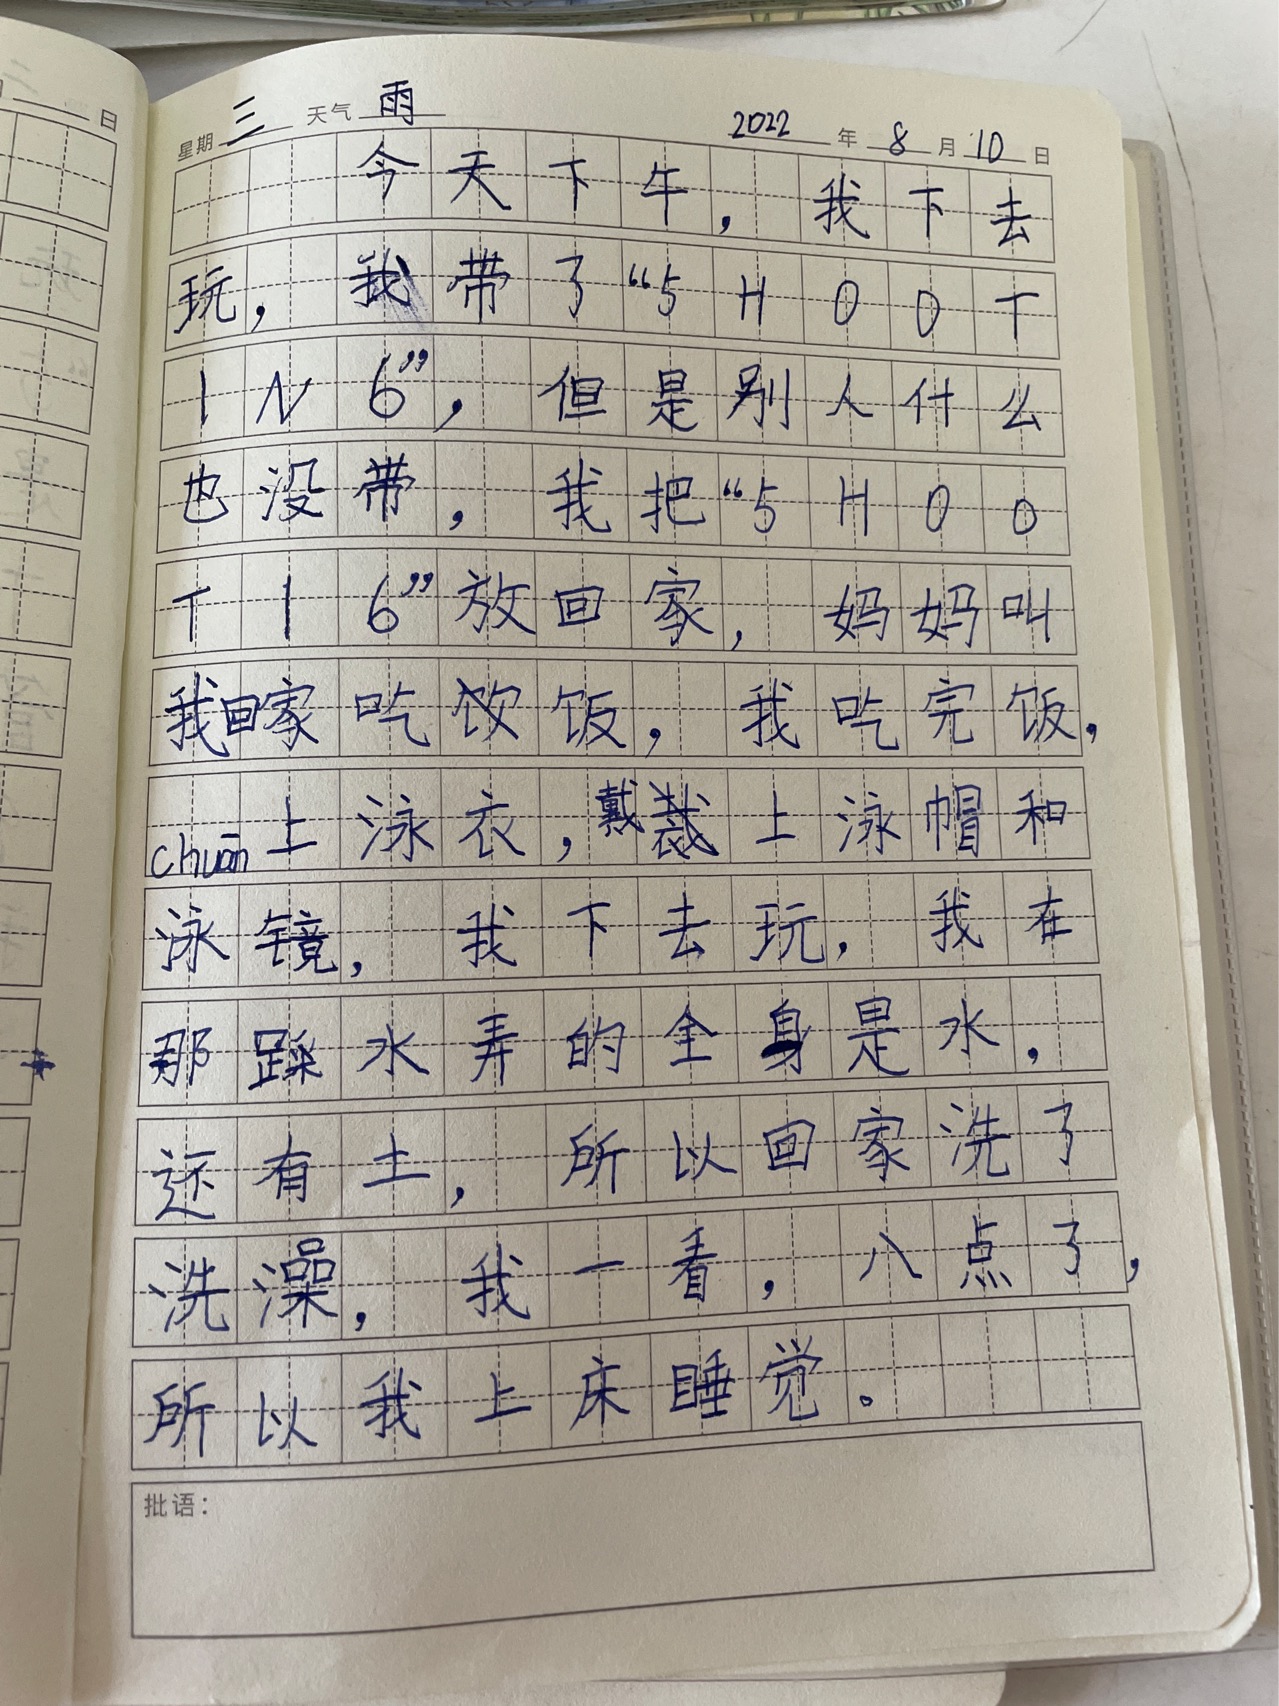 星期三 天气雨 2022年8月10日
今天下午，我下去
玩，我带了“5HOOT
IN6”，但是别人什么
也没带，我把“5HOO
TI6”放回家，妈妈叫
我回家吃饮饭，我吃完饭，
chuān上泳衣，戴裁上泳帽和
泳镜，我下去玩，我在
那踩水弄的全身是水，
还有土，所以回家洗了
洗澡，我一看，八点了，
所以我上床睡觉。
批语：
日